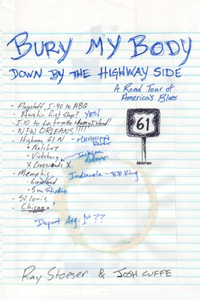 BURY MY BODY
DOWN BY THE HIGHWAY SIDE
A Road Tour of
America's Blues
- Flagstaff, I-40 to ABQ
- Austin first stop? YES!
- I-10 to Lafayette
- NEW ORLEANS!!!!
- Highway 61 N - Mississippi
61
• Natchez
• Vicksburg - Jackson
X Crossroads X
- Memphis Indianola - BB King
- Graceland
- Sun Studio
- St. Louis
- Chicago!
Depart Aug. ??
Ray Stoeser & Josh Cuffe